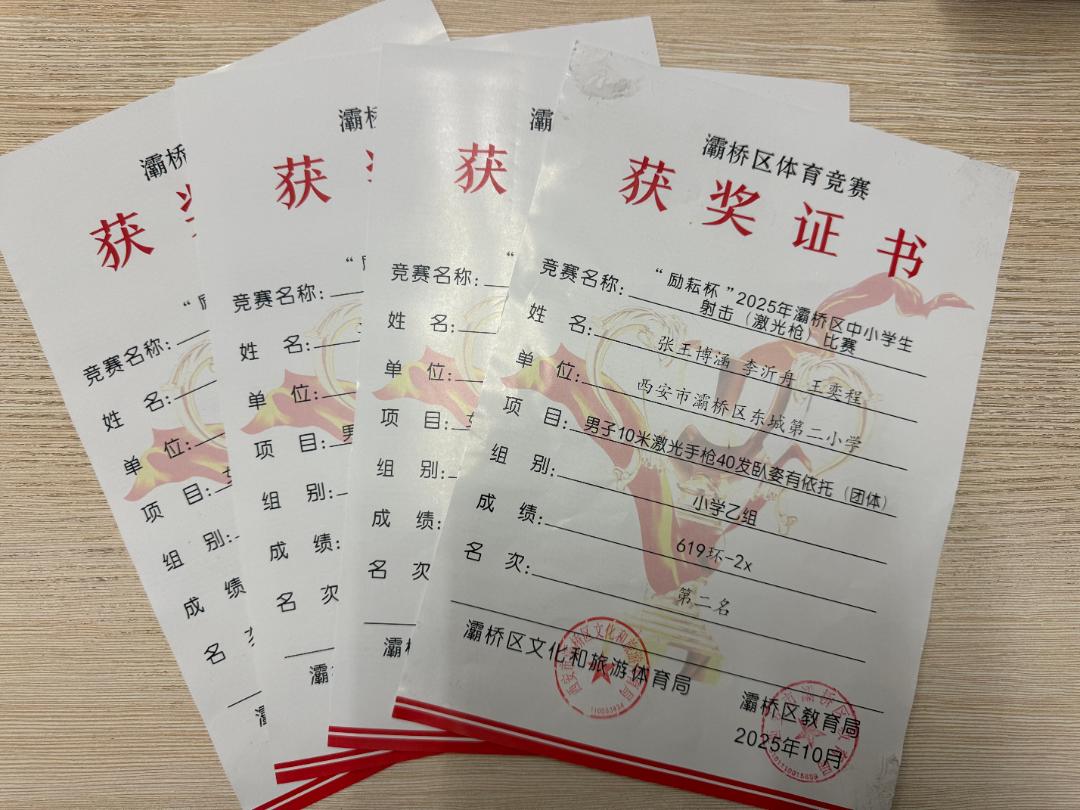 灞桥
获
竞赛名称:
姓 名:
单 位:
项 目:
组 别:
成 绩
名
灞
获
竞赛名称:
姓 名:
单 位:
项 目: 男
组 别:
成 绩:
名 次
灞
灞
获
竞赛名称:
姓 名:
单 位:
项 目:
组 别:
成 绩:
名 次
灞
灞桥区体育竞赛
获奖证书
竞赛名称: “励耘杯”2025年灞桥区中小学生
射击（激光枪）比赛
姓 名: 张王博涵 李沂丹 王奕程
单 位: 西安市灞桥区东城第二小学
项 目: 男子10米激光手枪40发卧姿有依托（团体）
组 别: 小学乙组
成 绩: 619环-2x
名 次: 第二名
灞桥区文化和旅游体育局
灞桥区教育局
2025年10月